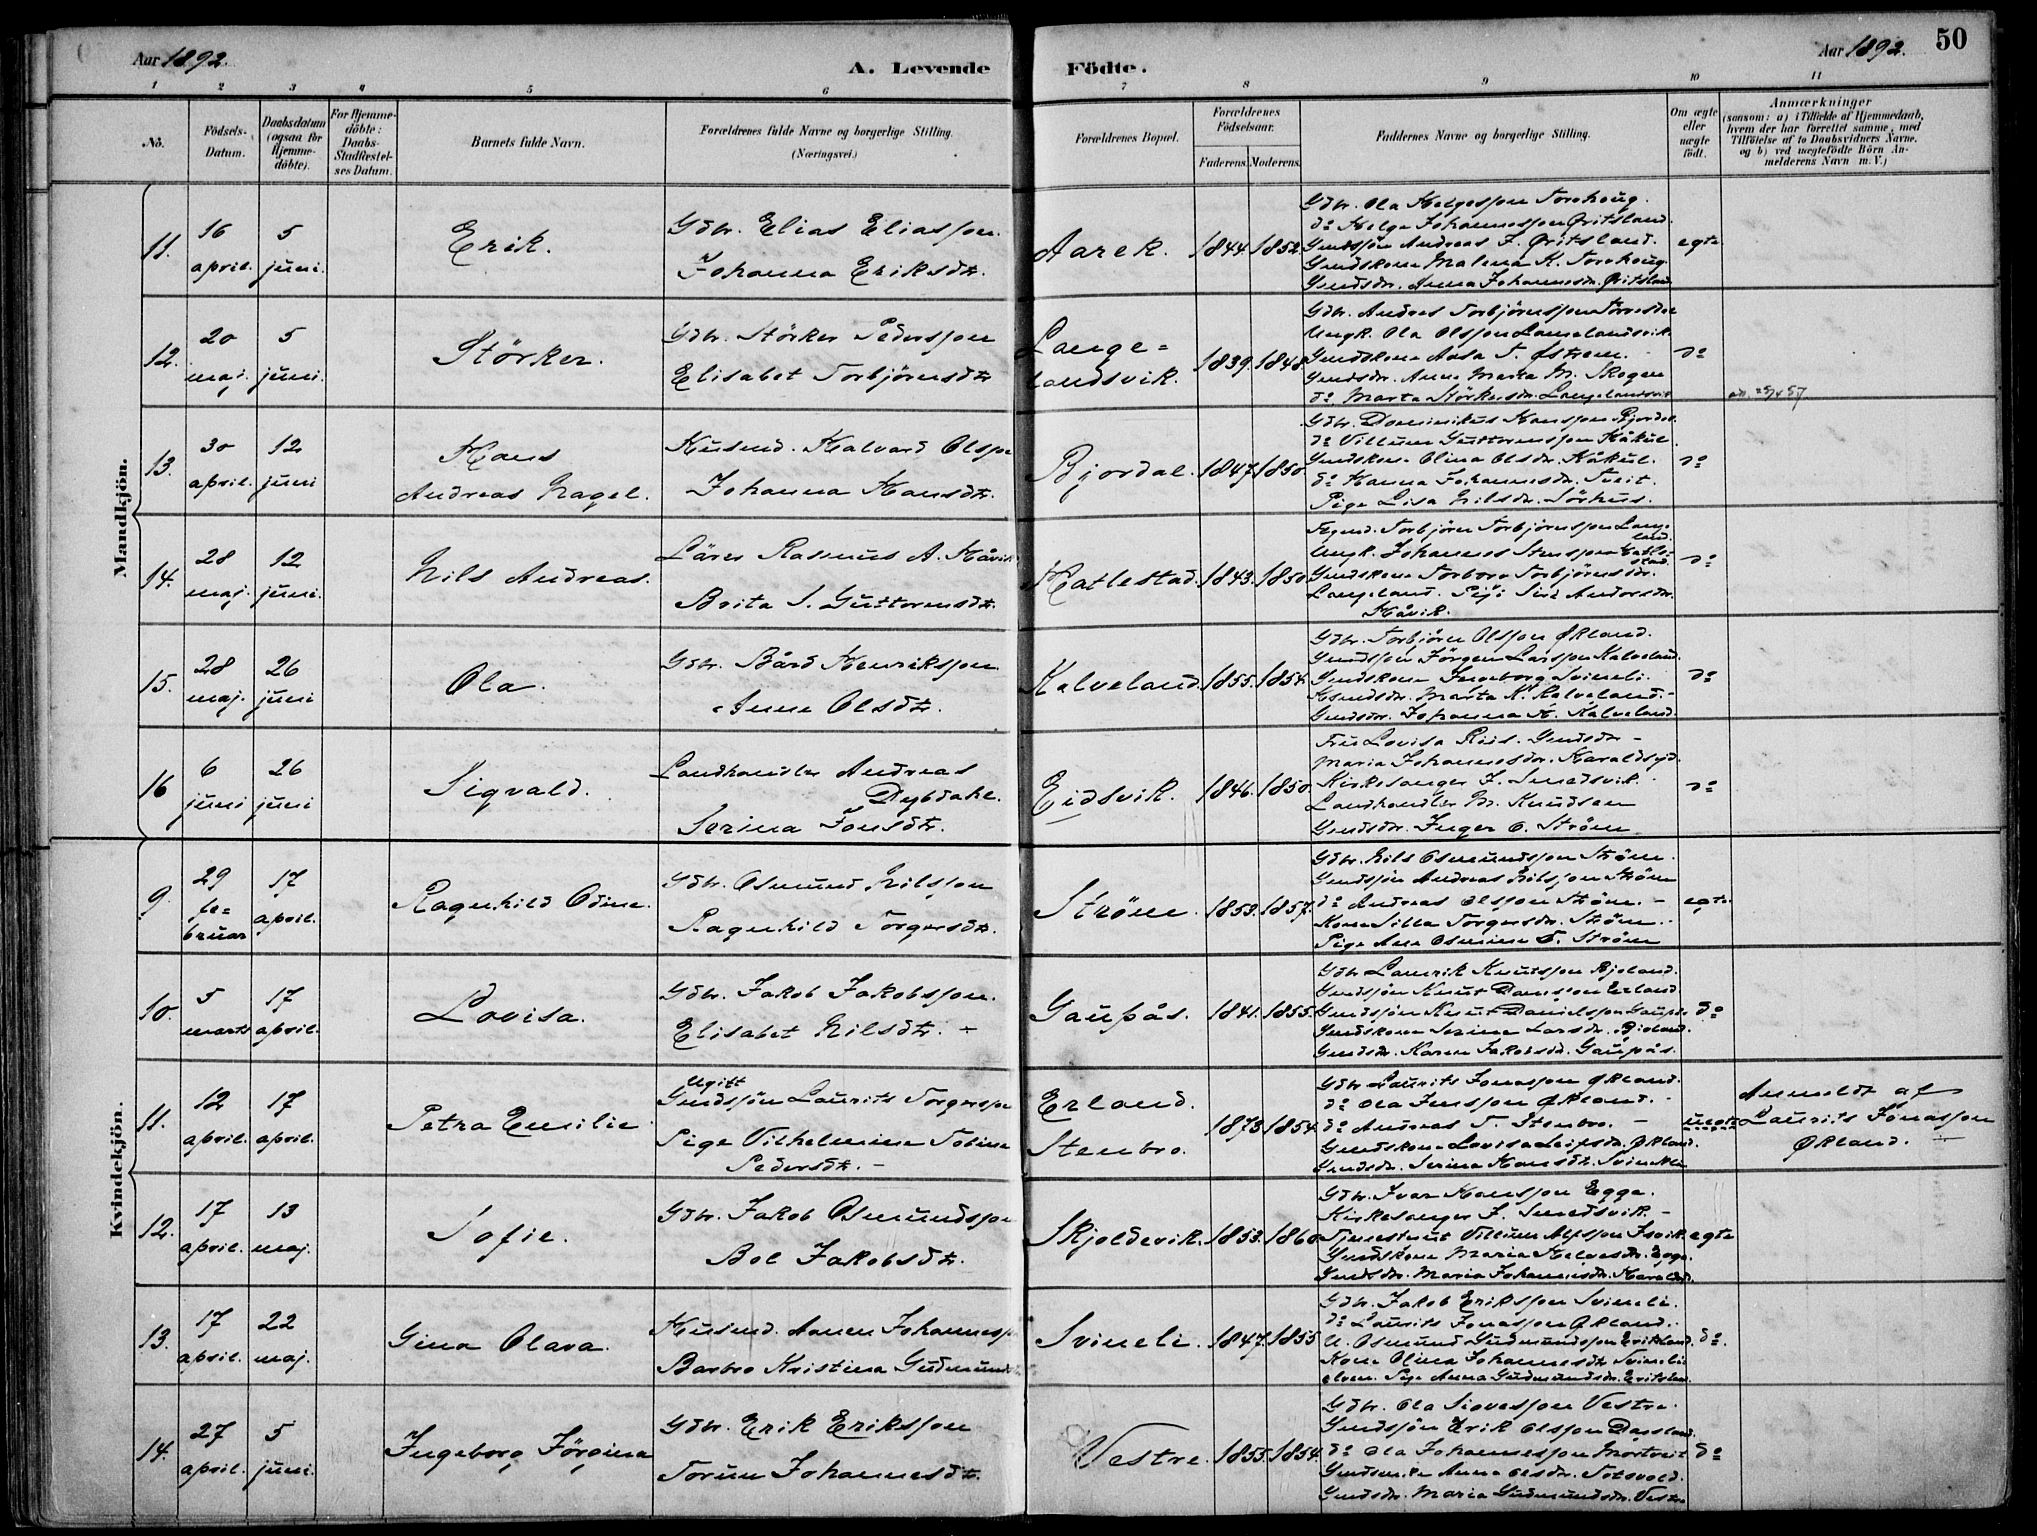 Aar 1892.
A. Levende Födte.
Aar 1892.
50
1 2 3 4 5 6 7 8 9 10 11
No.
Födsels-Datum.
Daabsdatum (ogsaa for Hjemmedöbte).
For Hjemmedöbte: Daabs-Stadfæstelses Datum.
Barnets fulde Navn.
Forældrenes fulde Navne og borgerlige Stilling. (Næringsvei.)
Forældrenes Bopæl.
Forældrenes Födselsaar.
Faderens. Moderens.
Faddernes Navne og borgerlige Stilling.
Om ægte eller uægte födt.
Anmærkninger
(saasom: a) i Tilfælde af Hjemmedaab,
hvem der har forrettet samme, med
Tilföielse af to Daabsvidners Navne.
og b) ved uægtefödte Börn An-
melderens Navn m. V.)
Mandkjön.
11. 16 april. 5 juni. Erik.
Gdbr. Elias Eliassøn.
Johanna Eriksdtr.
Aarek. 1844. 1852.
Gdbr. Ola Helgessøn Torehoug.
do Helge Johannessøn Øritsland.
Gmdssøn Andreas J. Øritsland.
Gmdskone Malena K. Torehoug.
Gmdsdr. Anna Johannesdr. Øritsland
egte
12. 20 maj. 5 juni. Störker.
Gdbr. Störker Pederssøn
Elisabet Torbjörnsdtr
Lange=
landsvik. 1839. 1848.
Gdbr. Andres Torbjörnssøn
Ungk. Ola Olssøn Langelandsvik
Gmdskone Aasa T. Østrem.
Gmdsdr. Anne Marta M. Skogen
do Marta Störkersdr. Langelandsvik
do
13. 30 april. 12 juni Hans
Andreas Nagel.
Husmd. Halvard Olssøn
Johanna Hansdtr.
Bjordal. 1847. 1850.
Gdbr. Dominikus Hanssøn Bjordal
do Villum Guttormssøn Håkul.
Gmdskone Olina Olsdr. Håkul.
do Hanna Johannesdr. Tveit.
Pige Lisa Nilsdr. Sörhus.
do
14. 28 maj. 12 juni. Nils Andreas.
Lärer Rasmus A. Håvik
Brita S. Guttormsdtr.
Hatlestad. 1843. 1850
Torbjörn Torbjörnssøn Lange-
land.
Ungk. Johannes Stenssøn Hatle-
stad.
Gmdskone Torbjörnsdr.
Langeland. Pige Siri Andersdr.
Håvik.
do
15. 28 maj. 26 juni Ola.
Gdbr. Bård Henrikssøn
Anne Olsdtr.
Kalveland. 1855. 1854.
Gdbr. Torbjörn Olssøn Økland.
Gmdssøn Jörgen Larssøn Kalveland.
Gmdskone Ingeborg Svineli.
Marta K. Kalveland.
Gmdsdr. Johanna H. Kalveland.
do
16 6 juni 26 juni Sigvald.
Landhandler Andreas
Dybdahl.
Serina Jonsdtr.
Eidsvik. 1846. 1850.
Fru Lovisa Riis. Gmdsdr
Maria Johannesdr. Haraldseid.
Kirkesanger J. Smedsvik.
Landhandler M. Knudsen
Gmdsdr. Inger O. Ström
do
Kvindekjön.
9. 29 fe=
bruar 17 april. Ragnhild Odine.
Gdbr. Osmund Nilssøn
Ragnhild Torgersdtr.
Ström. 1853. 1857.
Gdbr. Nils Osmundssøn Ström.
Gmdssøn Andreas Nilssøn Ström
do Andreas Olssøn Ström.
Kone Silla Torgersdr. Ström.
Pige Ane Osmine T. Ström
egte
10. 5 marts 17 april. Lovisa.
Gdbr. Jakob Jakobssøn.
Elisabet Nilsdtr.
Gaupås. 1841. 1855.
Gdbr Lamrik Knutssøn Bjoland.
Gmdssøn Knut Danielssøn Erland
Gmdssøn Knut Danielssøn Gaupås
Gmdskone Serina Larsdr. Bjoland.
Gmdsdr. Karen Jakobsdr. Gaupås.
do
11. 12 april. 17 april. Petra Emilie
Ugift
Gmdssøn Laurits Torgerssøn
Pige Vilhelmine Tobine
Pedersdtr.
Erland.
Stenbro. 1873. 1854.
Gdbr Laurits Jonassøn Økland.
do Ola Jenssøn Økland.
do Andreas T. Stenbro.
Gmdskone Lovisa Leifsdr. Økland.
Gmdsdr. Serina Hansdtr. Svineli
uegte
Anmeldt af
Laurits Jonassøn
Økland.
12. 17 april. 13 maj. Sofie.
Gdbr. Jakob Osmundssøn
Bol Jakobsdtr.
Skjoldevik. 1853. 1860.
Gdbr. Ivar Hanssøn Egge.
Kirkesanger J. Smedsvik.
Tjenestemt Villum Alfssøn Isvik
Gmdskone Maria Helgesdr. Egge.
Gmdsdr. Maria Johannesdr. Haralds.
egte
13. 17 april. 22 maj. Gina Olava.
Husmd. Aanen Johannessøn
Barbro Kristina Gudmunds
Svineli. 1847. 1855
Gdbr. Jakob Erikssøn Svineli.
do Laurits Jonassøn Økland.
U. Osmund Gudmundssøn Eritsland.
Kone Olina Johannesdtr Svineli
elven. Pige Anna Gudmundsdr. Eritsland.
do
14. 27 april. 5 juni. Ingeborg Jörgina
Gdbr. Erik Erikssøn
Torun Johannesdtr.
Vestre. 1855. 1854.
Gdbr. Ola Vestre.
Gmdssøn Erik Olssøn Dassland.
do Ola Johannessøn Mortveit
Anna Olsdr. Totsvold.
Gmdsdr. Maria Gudmundsdr. Vestre
do